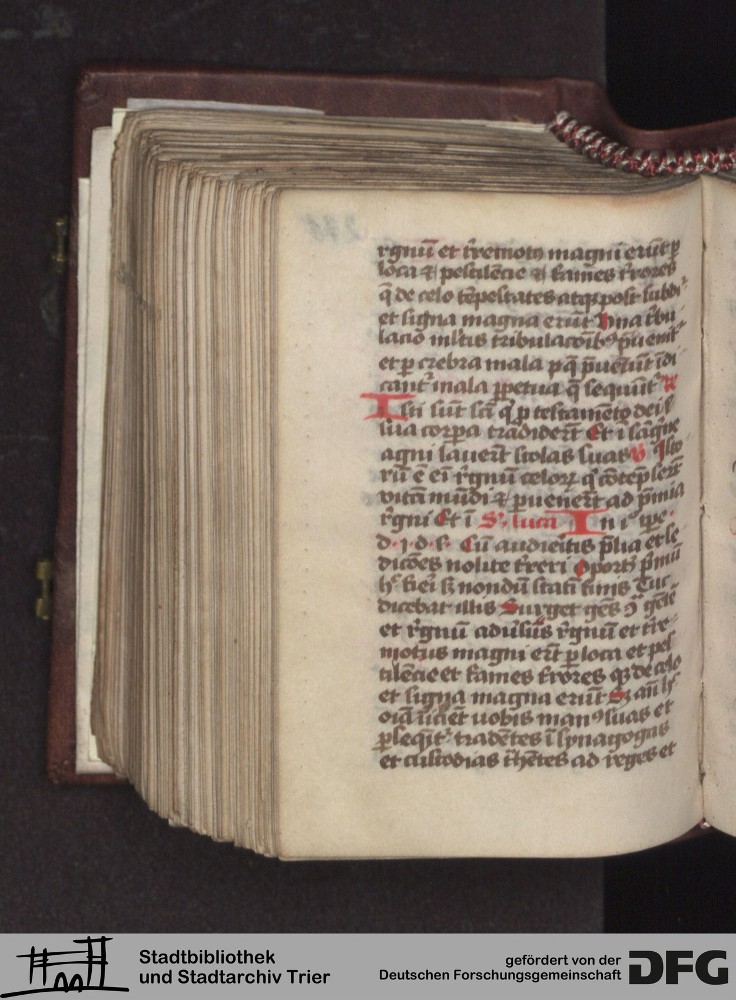 rgnuī et t̄remotꝯ magni erūt p̲
loca ⁊ pestilēcie ⁊ fames t̄rores
q̄ de celo tēpestates atqꝫ post subdi
et signa magna erūt Una tͥbu
lacio ml̄tis tribulacoīb9 p̄uenit
et p̲ crebra mala pꝰ q̄ p̄ueniūt īdi
cant᷑ mala p̲petua q̄ sequūt᷑ R
Isti sūt sc̄i q̄ p̲ testamēto dei
sua corpa tradider̄t Et ī sāgīne
agni lauer̄t stolas suas V Isto
rū ē eī rgnuū celoꝝ q̄ cōtēpser̄t
vitā mūdi ⁊ p̲uener̄t ad p̄mia
rgni Et ī S. luca In iͦ tpe
d. i. d. s. Cū audieitis p̄lia et se
dicōes nolite t̄reri Oportꝫ p̄mū
h̄ fiei sꝫ nondū stati finis Tūc
dicebat illis Surget gēs ꝯͣ gētē
et rgnuū adūsūs rgnuū et t̄re
motus magni er̄t p̲ loca et pes
tilēcie et fames t̄rores qꝫ de celo
et signa magna erūt Sꝫ an̄ h̄
oīa īicīet uobis man9 suas et
p̲seq̄t᷑ tradētes ī synagogas
et custodias t̄hētes ad reges et
Stadtbibliothek
und Stadtarchiv Trier
gefördert von der
Deutschen Forschungsgemeinschaft
DFG